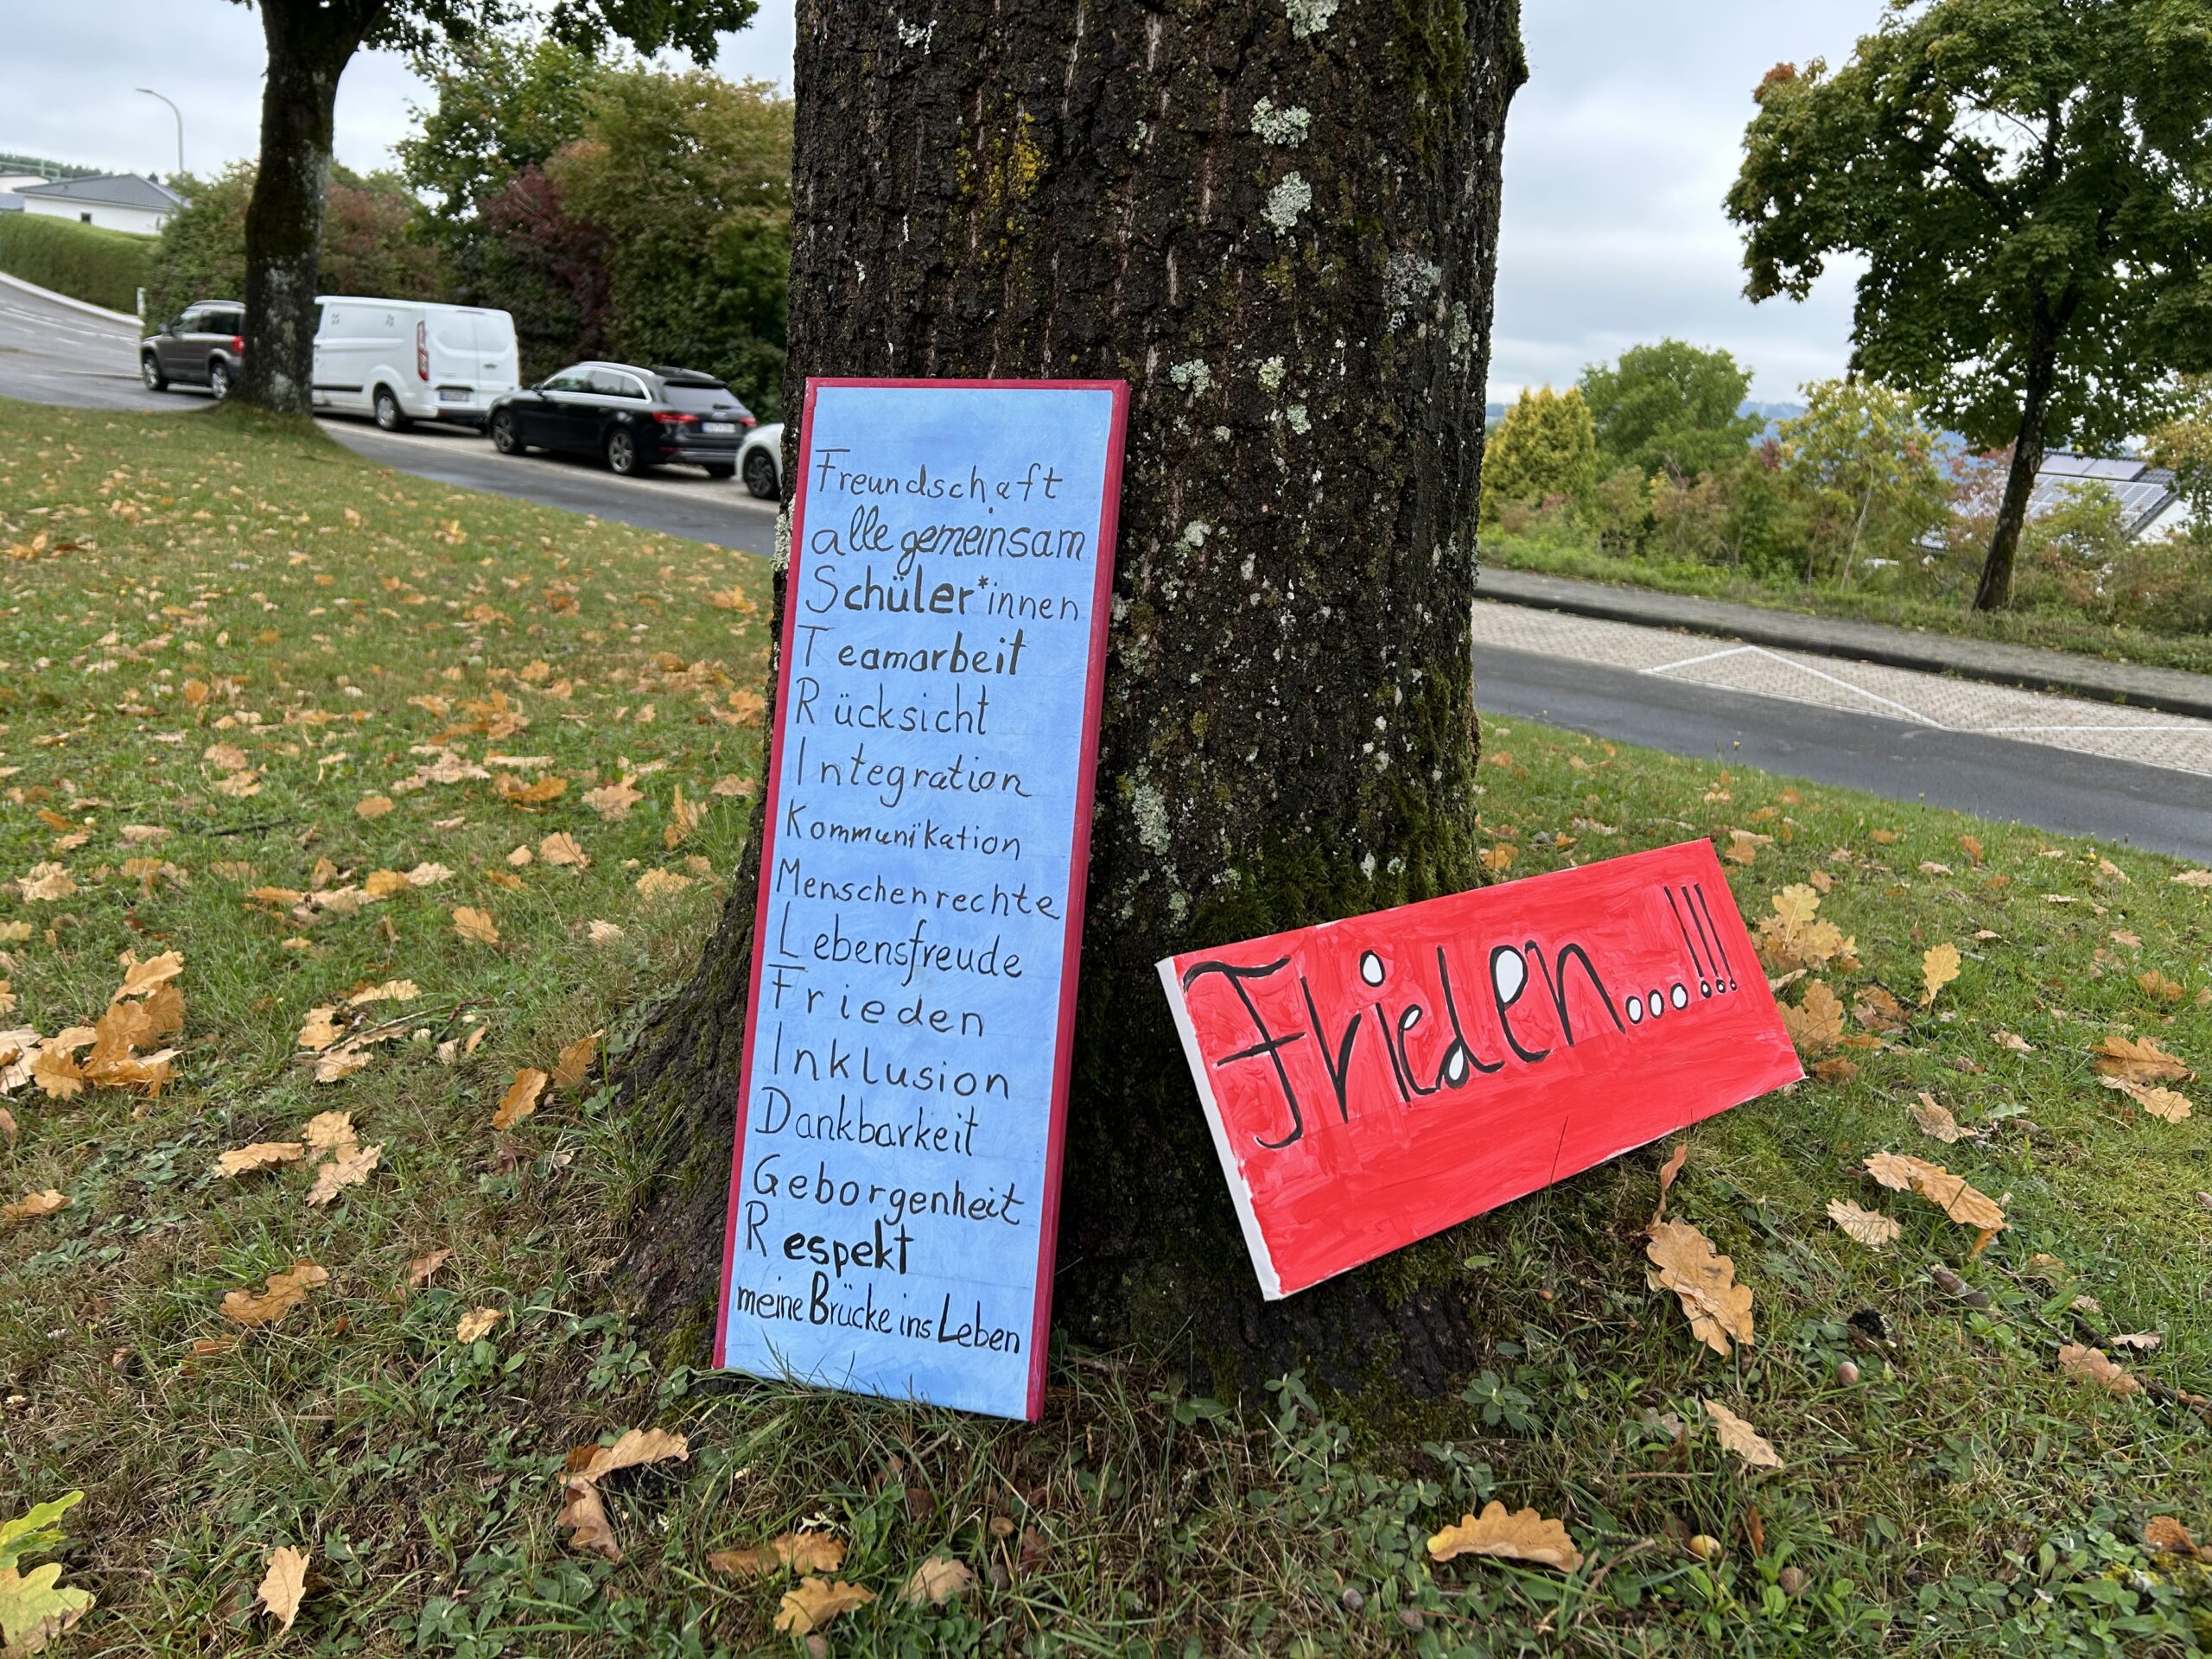 Freundschaft
alle gemeinsam
Schüler*innen
Teamarbeit
Rücksicht
Integration
Kommunikation
Menschenrechte
Lebensfreude
Frieden
Inklusion
Dankbarkeit
Geborgenheit
Respekt
meine Brücke ins Leben
Frieden...!!!